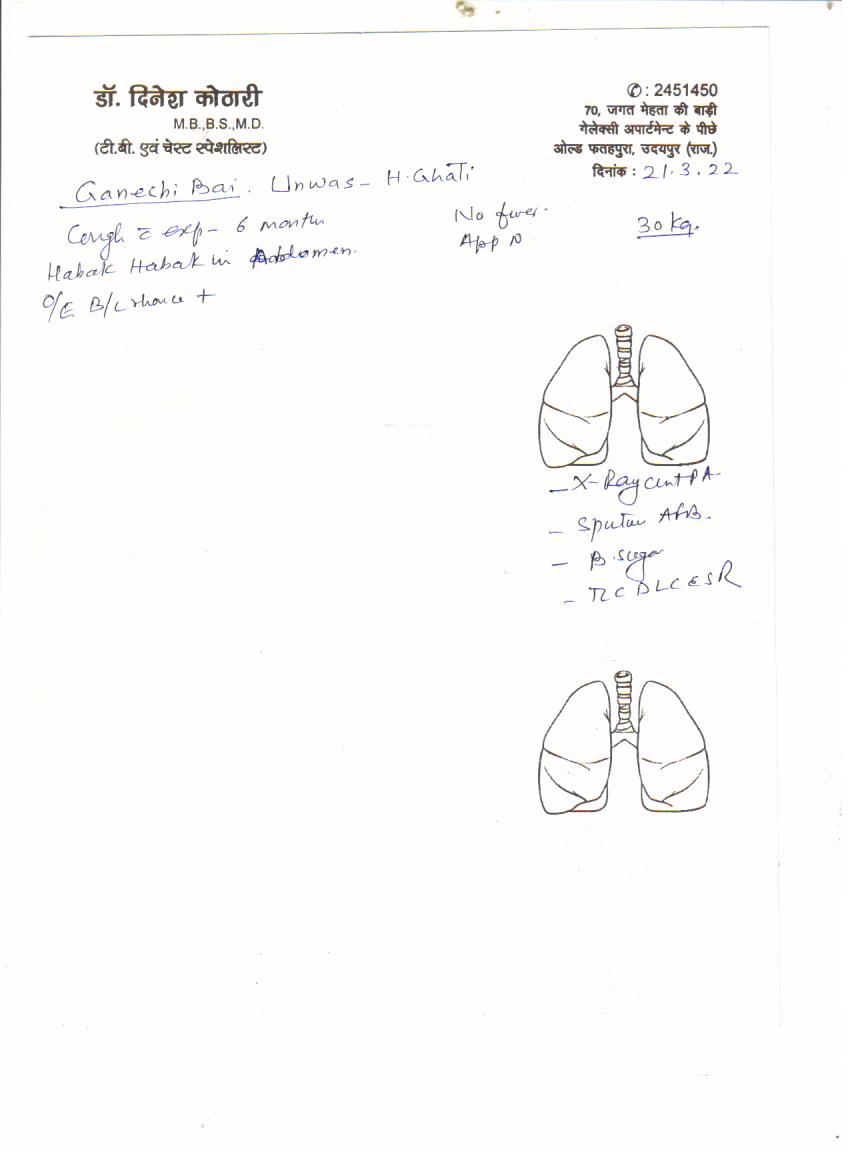 डॉ. दिनेश कोठारी
M.B.,B.S.,M.D.
(टी.बी. एवं चेस्ट स्पेशलिस्ट)
✆ : 2451450
70, जगत मेहता की बाड़ी
गेलेक्सी अपार्टमेन्ट के पीछे
ओल्ड फतहपुरा, उदयपुर (राज.)
दिनांक : 21.3.22
Ganechi Bai. Unwas - H.Ghati
Cough c̄ exp - 6 months
Habak Habak in Abdomen.
O/E B/L rhonce +
No fever.
App N
30 kg.
- X-Ray Chest PA
- Sputum AFB.
- B.Sugar
- TLC DLC ESR